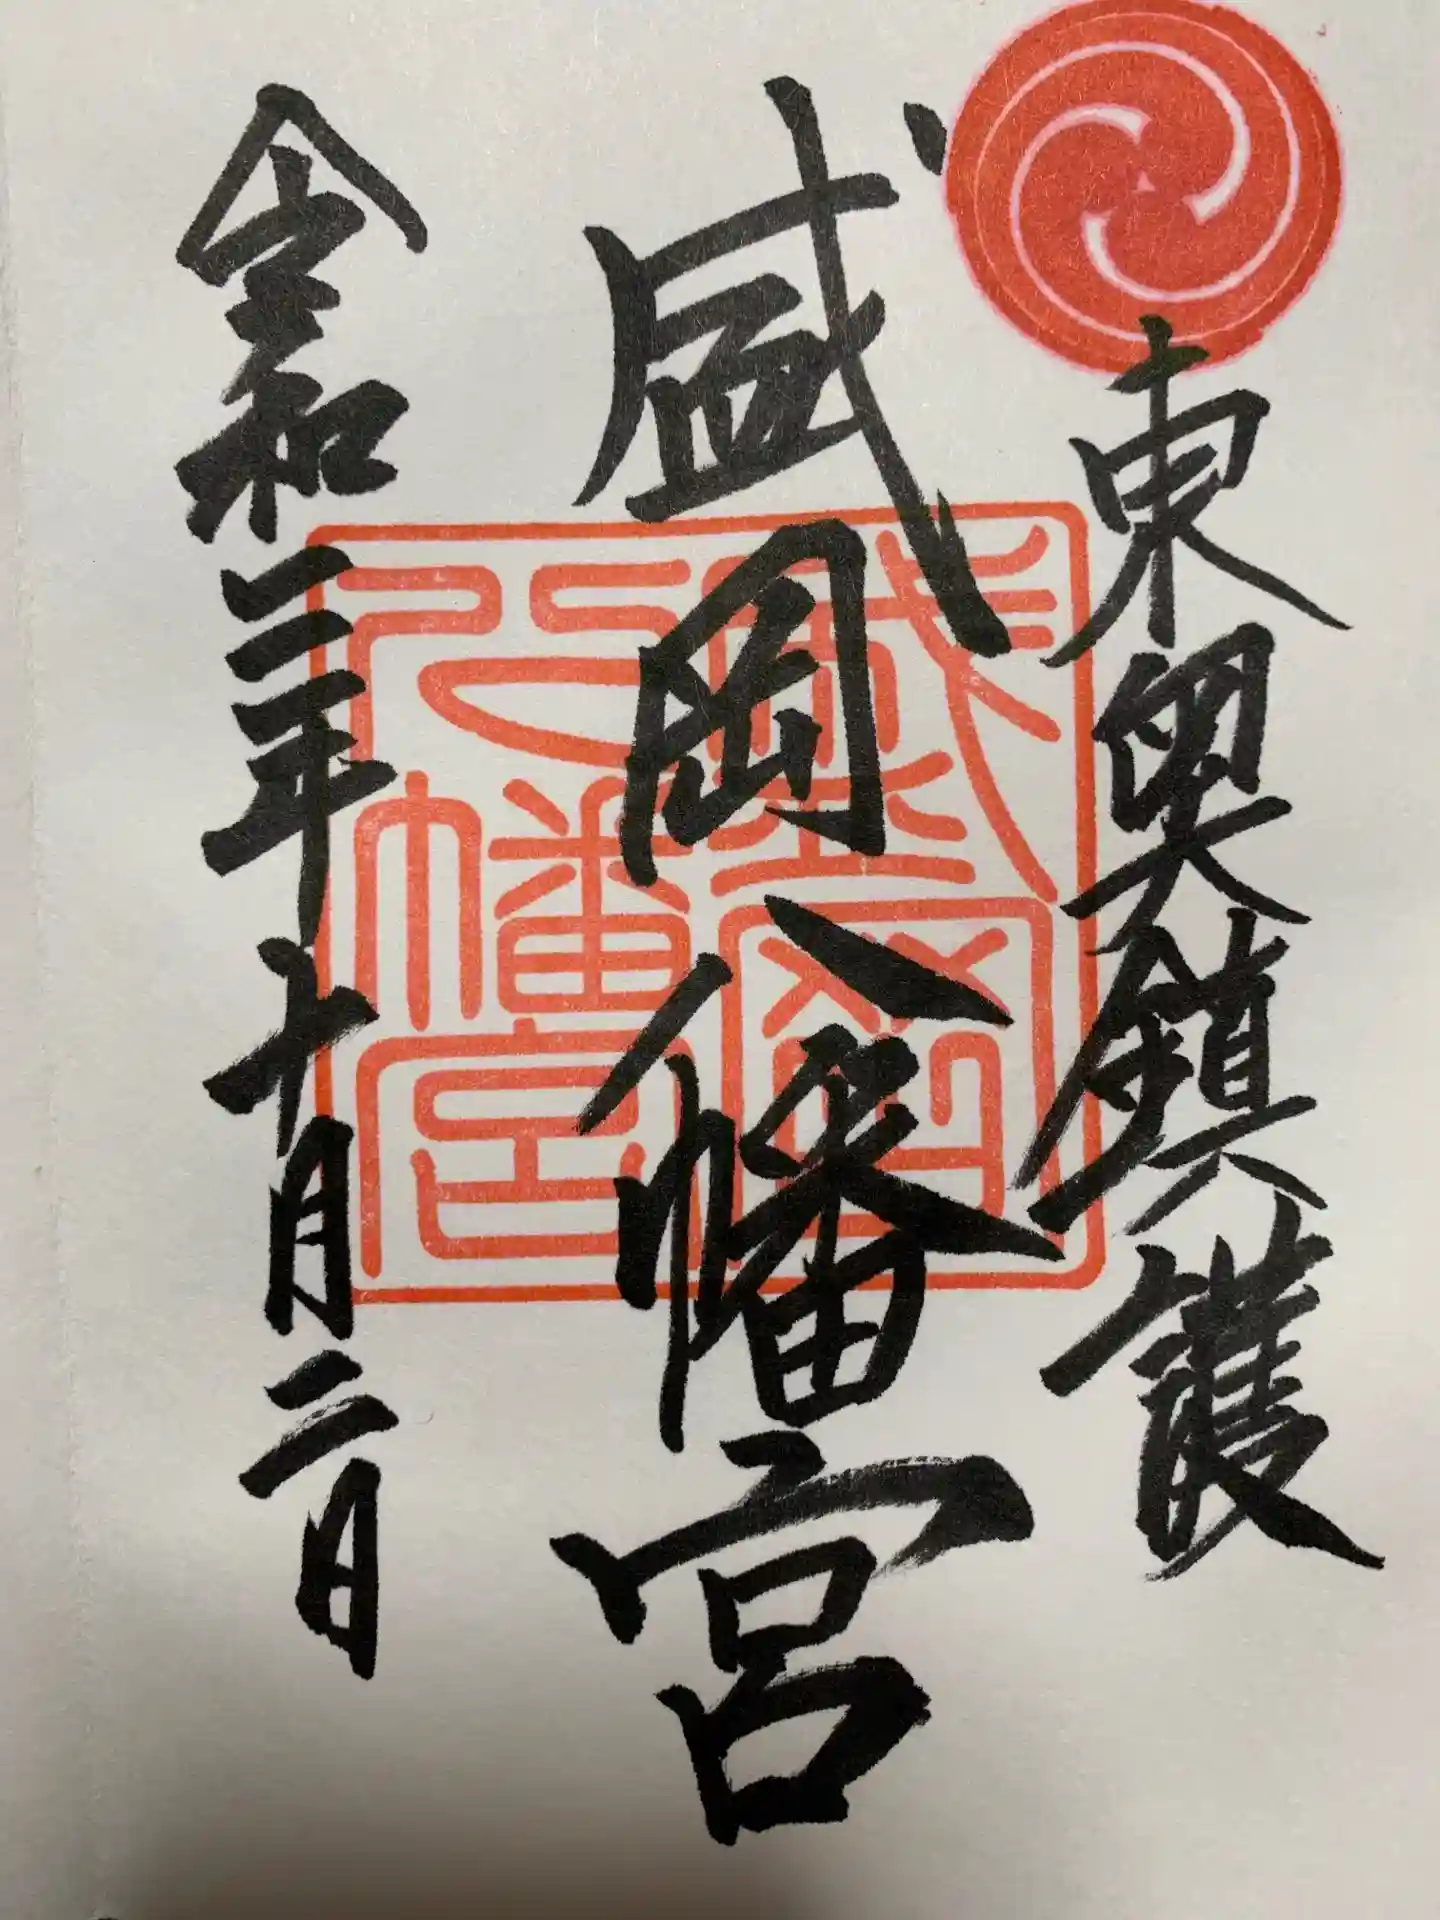 東奥鎮護
盛岡八幡宮
盛岡八幡宮
令和二年十月二日